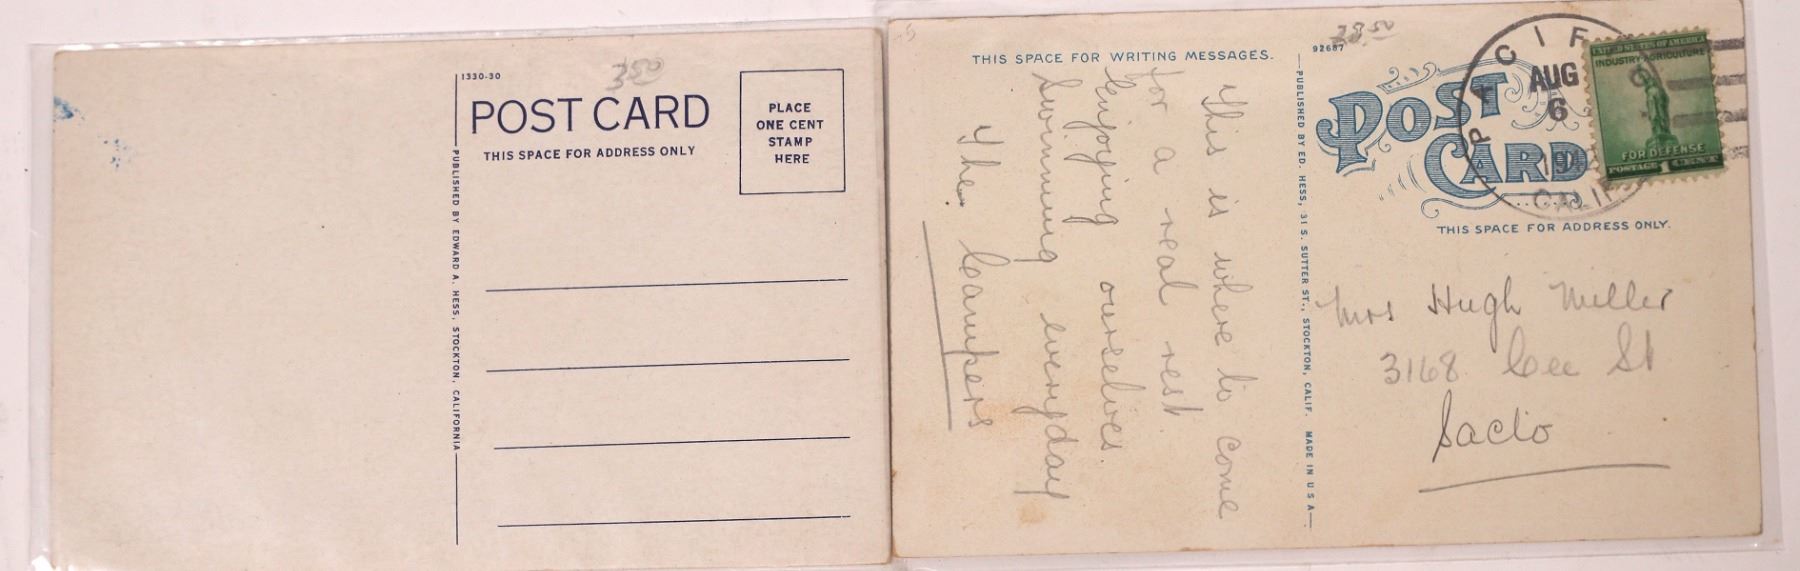 1330-30
3 50
POST CARD
THIS SPACE FOR ADDRESS ONLY
PLACE
ONE CENT
STAMP
HERE
PUBLISHED BY EDWARD A. HESS, STOCKTON, CALIFORNIA
THIS SPACE FOR WRITING MESSAGES.
This is where to come
for a real rest.
Enjoying ourselves.
Swimming everyday
The Campers
PUBLISHED BY ED. HESS, 31 S. SUTTER ST., STOCKTON, CALIF. MADE IN U S A
92687
POST
CARD
THIS SPACE FOR ADDRESS ONLY.
PACIFIC
AUG
6
19
CALIF
UNITED STATES OF AMERICA
INDUSTRY AGRICULTURE
FOR DEFENSE
POSTAGE 1 CENT
Mrs Hugh Miller
3168 Cee St
Sacto